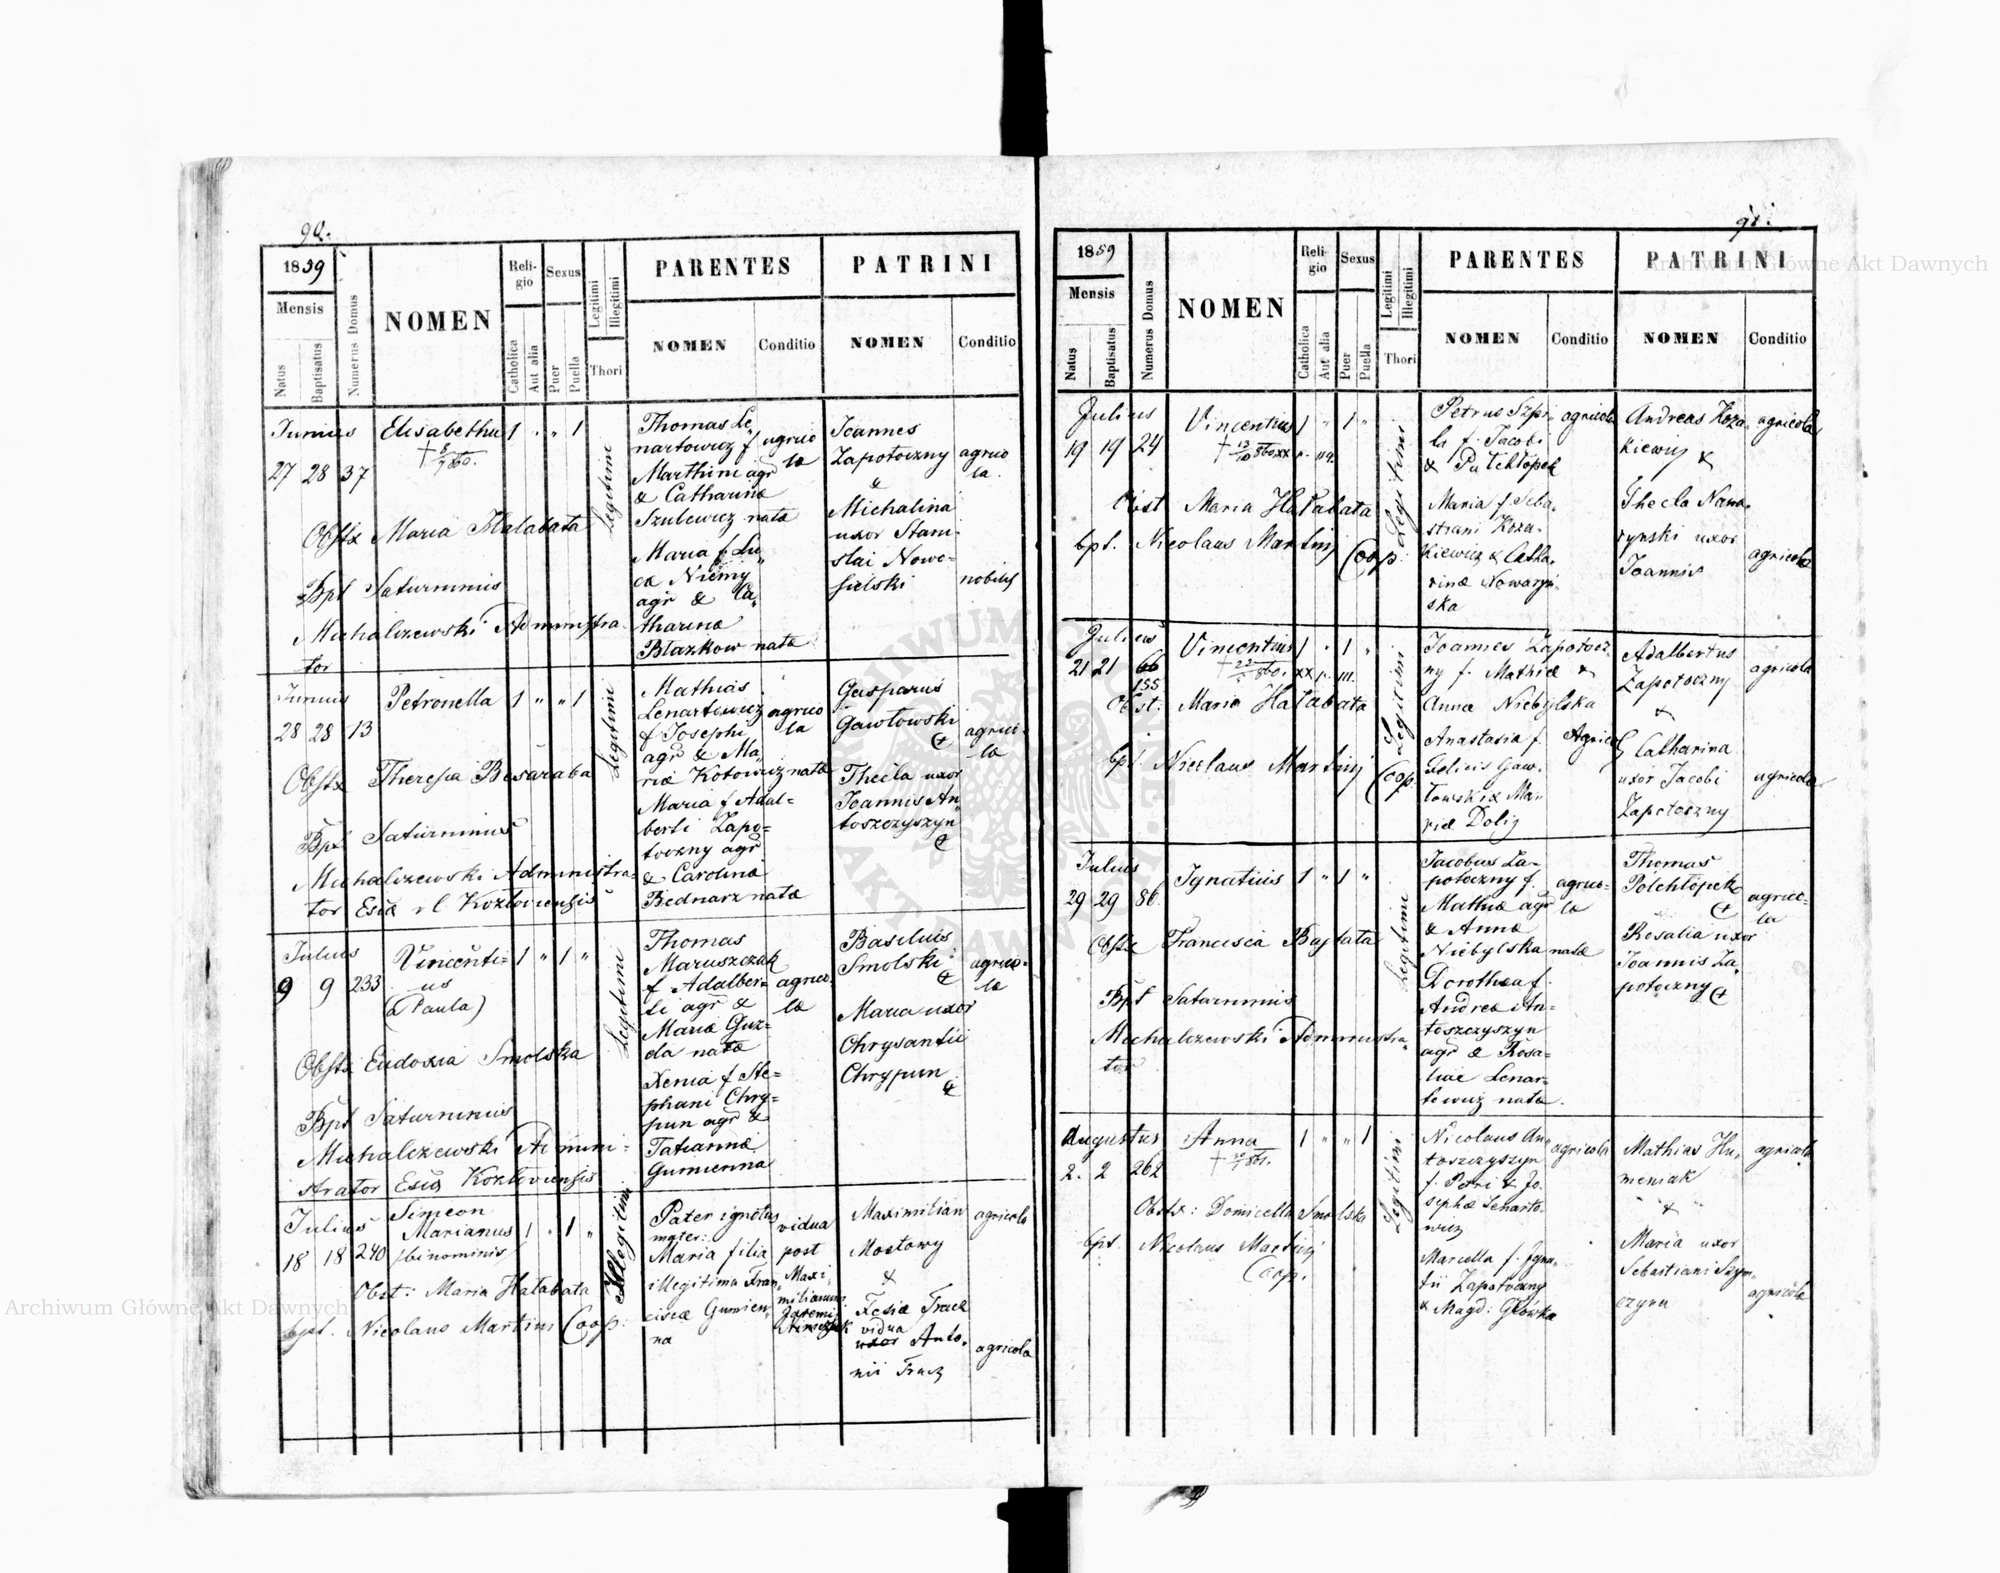 90.
1859
Mensis
Natus
Baptisatus
Numerus Domus
NOMEN
Reli-
gio
Catholica
Aut alia
Sexus
Puer
Puella
Legitimi
Illegitimi
Thori
PARENTES
NOMEN
Conditio
PATRINI
NOMEN
Conditio
Junius
27 28 37
Elisabetha 1 " " 1
Obstx Maria Hałabata
Bpt Saturninus
Michalczewski Administra-
tor
Legitimi
Thomas Le-
nartowicz f
Marthini agr
& Catharinæ
Szulewicz nata
Maria f Lu-
cæ Niemy
agr & Ca-
tharinæ
Blazkow nata
agrico
la
Joannes
Zapotoczny
&
Michalina
uxor Stani-
slai Nowo-
sielski
agrico
la.
nobilis
Junius
28 28 13
Petronella 1 " " 1
Obstx Theresia Besaraba
Bpt Saturninus
Michalczewski Administra-
tor Esiæ rl Kozłoviensis
Legitimi
Mathias
Lenartowicz
f Josephi
agr & Ma-
riæ Kotowicz nata
Maria f Adal-
berti Zapo-
toczny agr
& Carolinæ
Bednarz nata
agrico
la
Gasparus
Gawłowski
Thecla uxor
Joannis An-
toszczyszyn
agrico-
la
Julius
9 9 233
Vincenti-
us
(a Paula)
1 " 1 "
Obstx Eudoxia Smolska
Bpt Saturninus
Michalczewski Admini-
strator Esiæ Kozłoviensis
Legitimi
Thomas
Maruszczak
f Adalber-
ti agr &
Mariæ Guz-
da nata
Xenia f Ste-
phani Chry-
pun agr &
Tatianna
Gumienna
agrico
la
Basilius
Smolski
Maria uxor
Chrysantii
Chrypun
agrico-
la
Julius
18 18 240
Simeon
Marianus
/binominis/
1 " 1 "
Obst: Maria Hałabata
bpt. Nicolaus Martini Coop:
Illegitimi
Pater ignotus
mater:
Maria filia
illegitima Fran-
ciscæ Gumien-
na
vidua
post
Maxi
milianum
Maximilian
Mostowy
&
Xesia Tracz
vidua
uxor Anto-
nii Tracz
agricola
agricola
91.
1859
Mensis
Natus
Baptisatus
Numerus Domus
NOMEN
Reli-
gio
Catholica
Aut alia
Sexus
Puer
Puella
Legitimi
Illegitimi
Thori
PARENTES
NOMEN
Conditio
PATRINI
NOMEN
Conditio
Julius
19 19 24
Vincentius 1 " 1 "
Obst Maria Hałabata
bpt. Nicolaus Martinj Coop:
Legitimi
Petrus Szpi-
la f. Jacobi
Maria f. Seba-
stiani Koza-
kiewicz & Catha-
rinæ Nowaryń-
ska
agricola
Andreas Koza-
kiewicz &
Thecla Nawa-
rynski uxor
Joannis
agricola
agricola
Julius
21 21 66
155
Vincentius 1 " 1 "
Obst. Maria Hałabata
bpt Nicolaus Martinj Coop
Legitimi
Joannes Zapotocz-
ny f. Mathiæ &
Annæ Niebylska
Anastasia f.
Felicis Gaw-
łowski & Ma-
riæ Dolij
Agricol
Adalbertus
Zapotoczny
&
Catharina
uxor Jacobi
Zapotoczny
agricola
agricola
Julius
29 29 86
Ignatius 1 " 1 "
Obstx Francisca Bajtała
Bpt Saturninus
Michalczewski Administra-
tor
Legitimi
Jacobus Za-
potoczny f.
Mathiæ agr
& Annæ
Niebylska nata
Dorothea f.
Andreæ An-
toszczyszyn
agr & Rosa-
liae Lenar-
tewicz nata.
agrico-
la
Thomas
Połchłopek
Rosalia uxor
Joannis Za-
potoczny
agrico-
la
Augustus
2. 2 262
Anna 1 " " 1
Obstx: Domicella Smolska
bpt. Nicolaus Martinj
Coop.
Legitimi
Nicolaus An-
toszczyszyn
f. Petri & Jo-
sephæ Lenarto-
wicz
Marcella f. Igna-
tii Zapotoczny
& Magd: Główka
agricola
Mathias Hu-
meniak
&
Maria uxor
Sebastiani Szym-
czyna
agricola
agricola
Archiwum Główne Akt Dawnych
Archiwum Główne Akt Dawnych